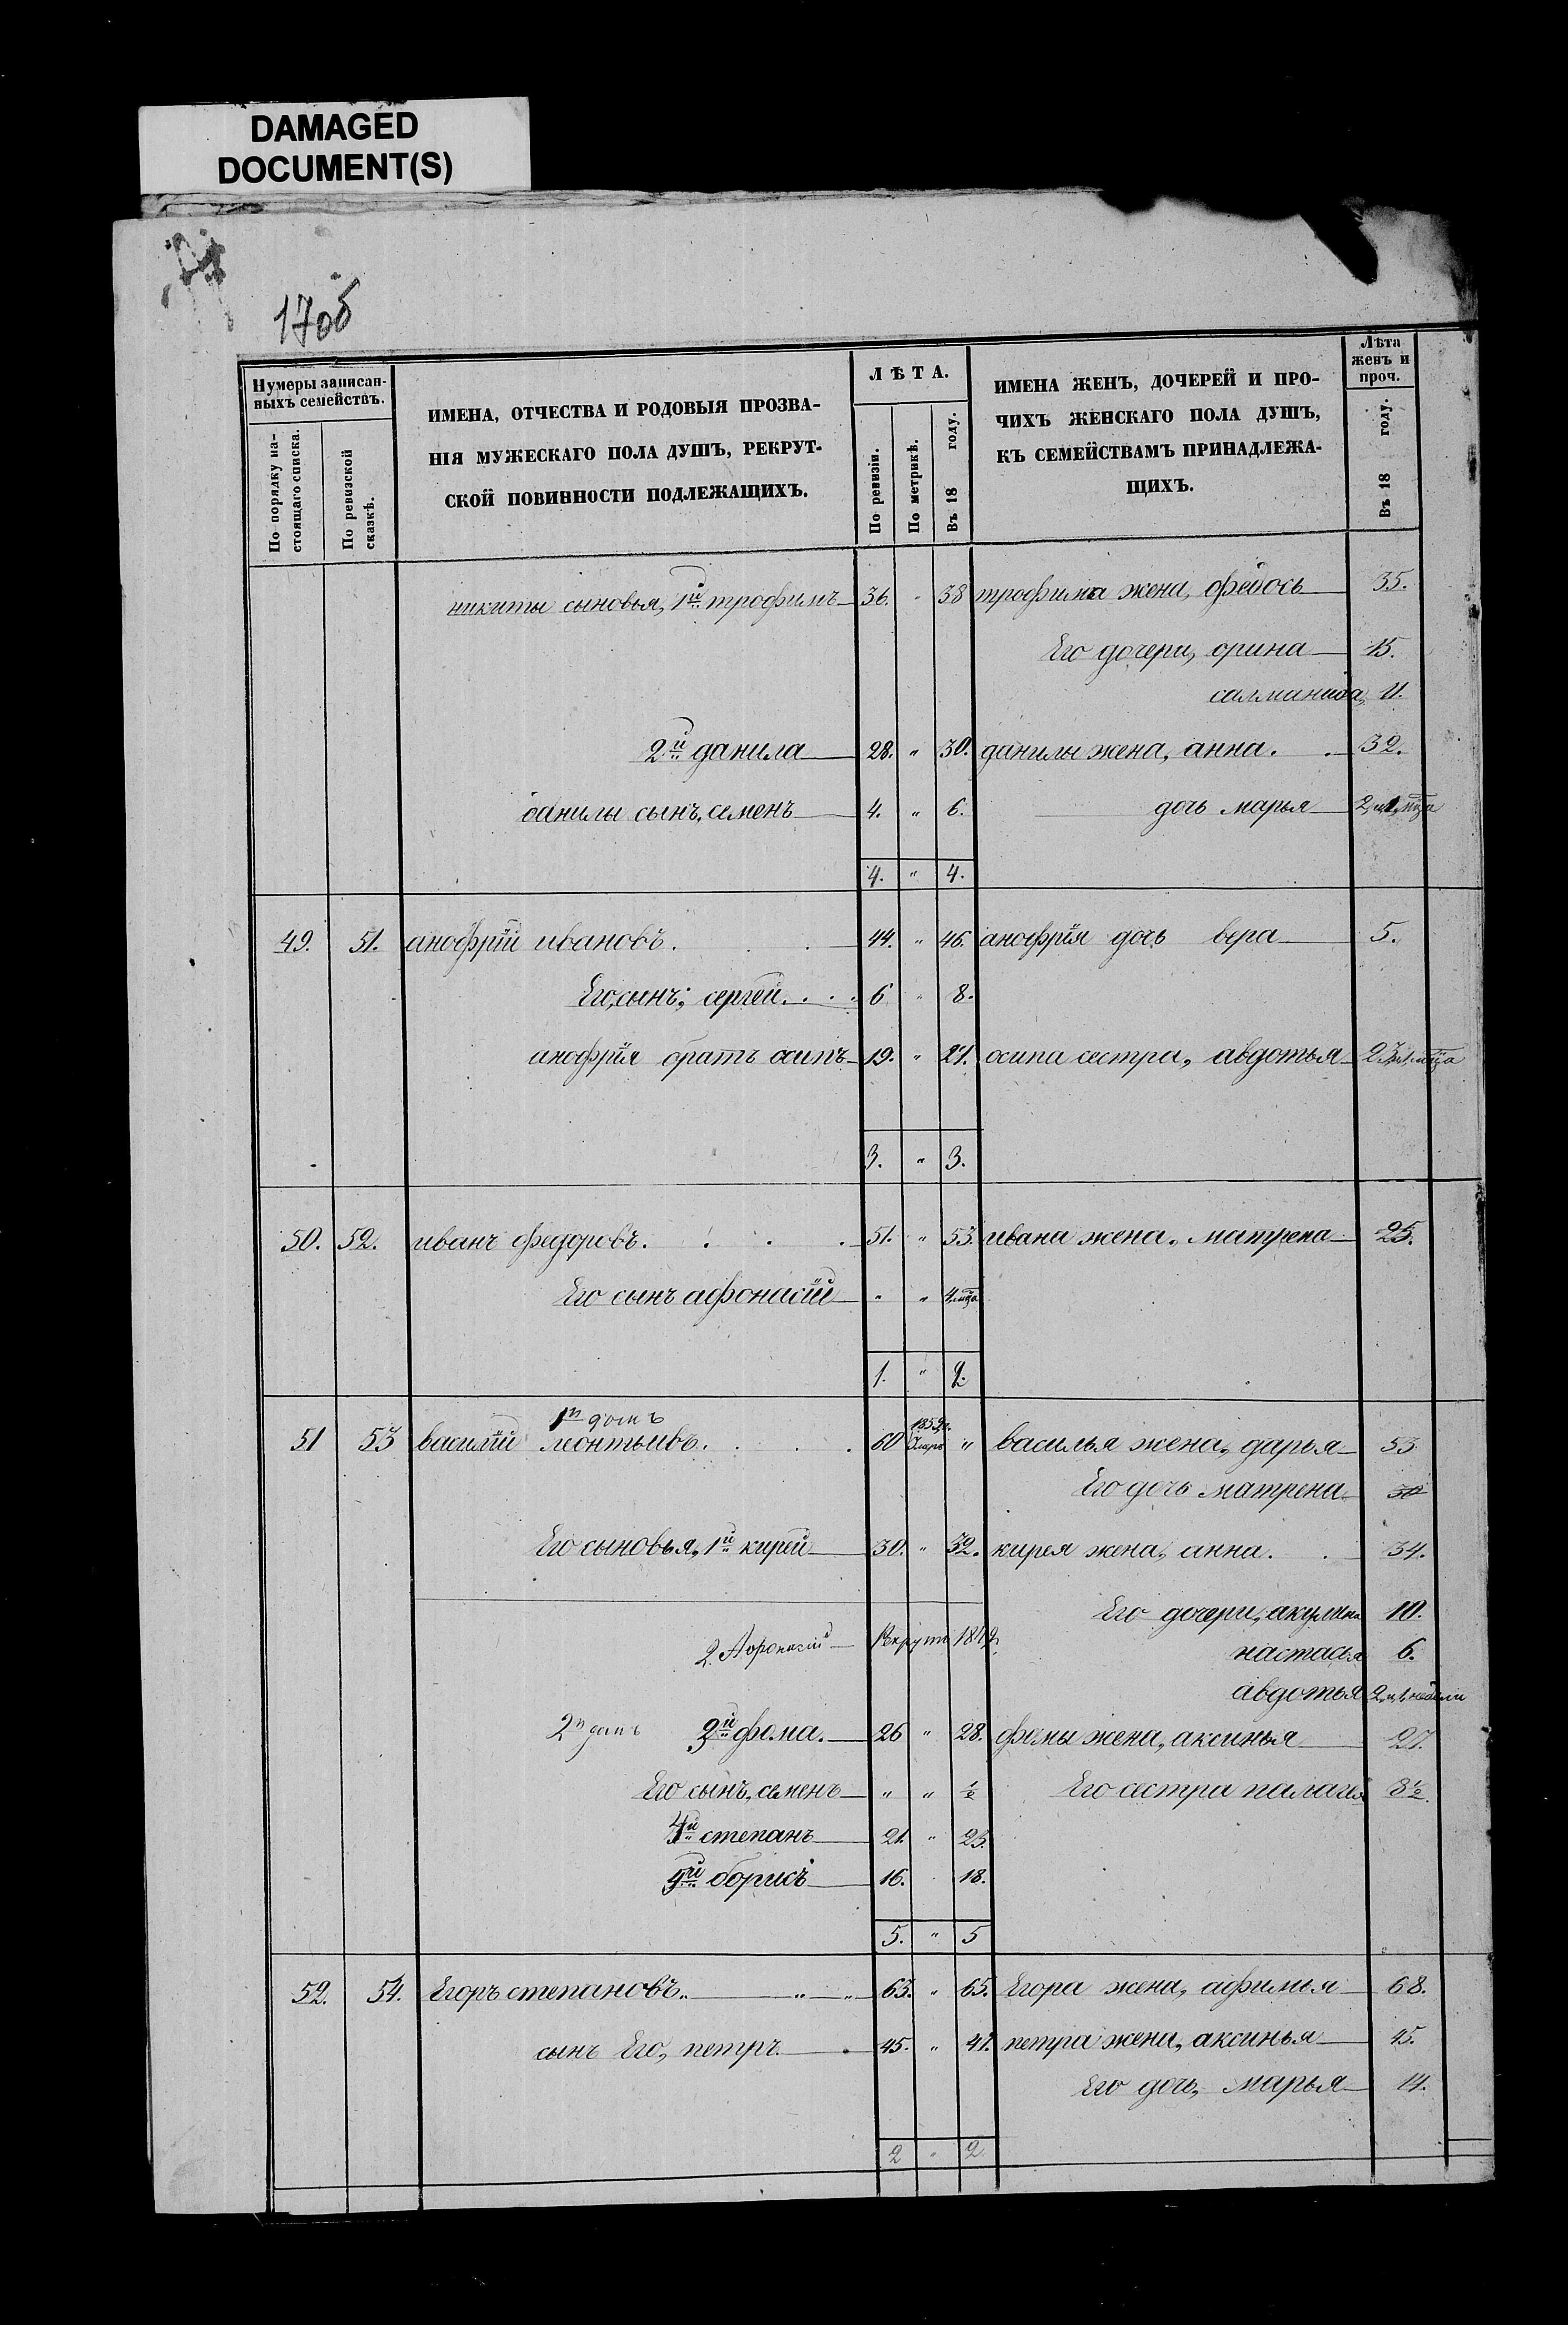 DAMAGED
DOCUMENT(S)
170б
Нумеры записан-
ныхъ семействъ.
По порядку на-
стоящаго списка.
По ревизской
сказкѣ.
ИМЕНА, ОТЧЕСТВА И РОДОВЫЯ ПРОЗВА-
НІЯ МУЖЕСКАГО ПОЛА ДУШЪ, РЕКРУТ-
СКОЙ ПОВИННОСТИ ПОДЛЕЖАЩИХЪ.
ЛѢТА.
По ревизіи.
По метрикѣ.
Въ 18 году.
ИМЕНА ЖЕНЪ, ДОЧЕРЕЙ И ПРО-
ЧИХЪ ЖЕНСКАГО ПОЛА ДУШЪ,
КЪ СЕМЕЙСТВАМЪ ПРИНАДЛЕЖА-
ЩИХЪ.
Лѣта
женъ и
проч.
Въ 18 году.
никиты сыновья, 1й трофимъ 36. " 38 трофима жена, федось 35.
Его дочери, орина 15.
салманида, 11.
2й данила 28. " 30. данилы жена, анна. 32.
данилы сынъ, семенъ 4. " 6. дочь марья 2, и 1, мца
4. " 4.
49. 51. анофрій ивановъ. 44. " 46. анофрія дочь вера 5.
Его, сынъ; сергей 6 " 8.
анофрія братъ осипъ 19. " 21. осипа сестра, авдотья
3. " 3.
50. 52. иванъ федоровъ. 51. " 53. ивана жена, матрена 25.
Его сынъ афонасій " " 4 мца
1. " 2.
1й домъ
51 53 василій леонтьивъ. 60 " василья жена, дарья 53
Его дочь матрена 30
Его сыновья, 1й кирей 30. " 32. кирея жена, анна. 34.
Его дочери, акулина 10.
2. Афонасій Рекрутъ настасья 6.
авдотья 2, и 1, недели
2й домъ 3й фома. 26 " 28. фомы жена, аксинья 27.
Его сынъ, семенъ " " ½ Его сестра палагея 8½.
4й степанъ 21. " 23.
5й борисъ 16. 18.
5. " 5
52. 54. Егоръ степановъ. 63. " 65. Егора жена, афимья 68.
сынъ Его, петръ 45. " 47. петра жена, аксинья 45.
Его дочь, марья 14.
2 " 2